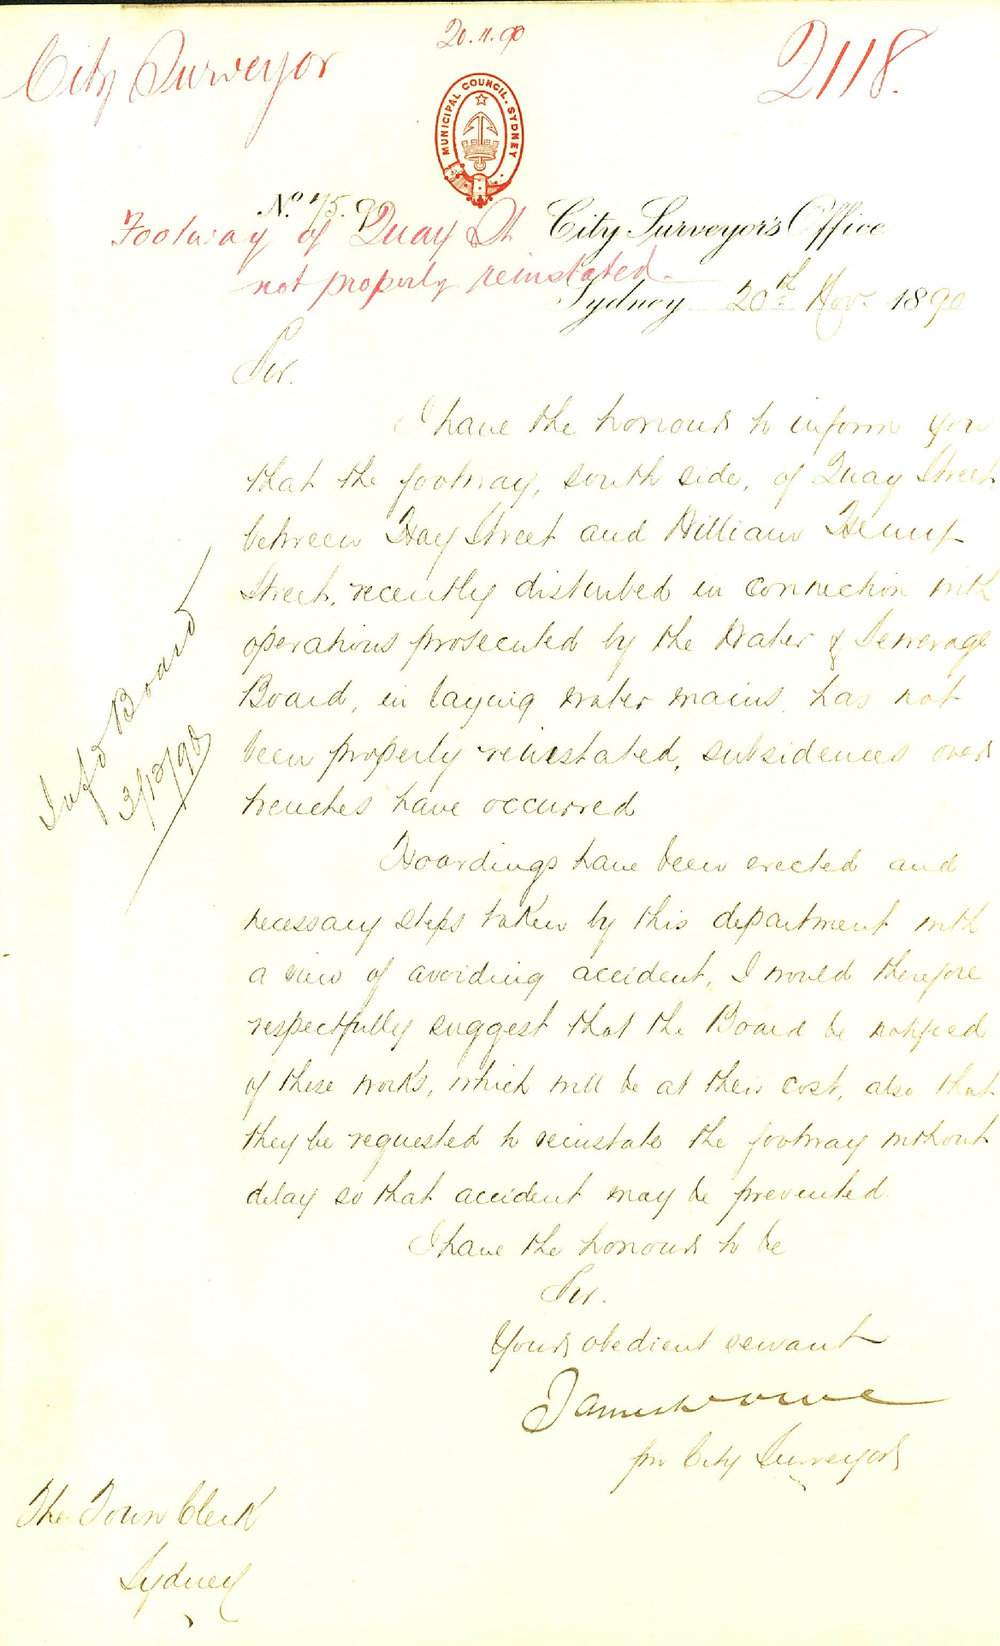 20.11.90
City Surveyor
2118.
MUNICIPAL COUNCIL. SYDNEY
No. 75. 90
City Surveyor's Office
Footway of Quay St
not properly reinstated.
Sydney 20th Nov. 1890
Sir.
I have the honour to inform you
that the footway, south side, of Quay Street
between Hay Street and William Henry
Street, recently disturbed in connection with
operations prosecuted by the Water & Sewerage
Board, in laying water mains, has not
been properly reinstated, subsidences over
trenches have occurred
Hoardings have been erected and
necessary steps taken by this department with
a view of avoiding accident, I would therefore
respectfully suggest that the Board be notified
of these works, which will be at their cost, also that
they be requested to reinstate the footway without
delay so that accident may be prevented.
I have the honour to be
Sir.
Your obedient servant
James
pro City Surveyor
The Town Clerk
Sydney
Infd Board
3/12/90